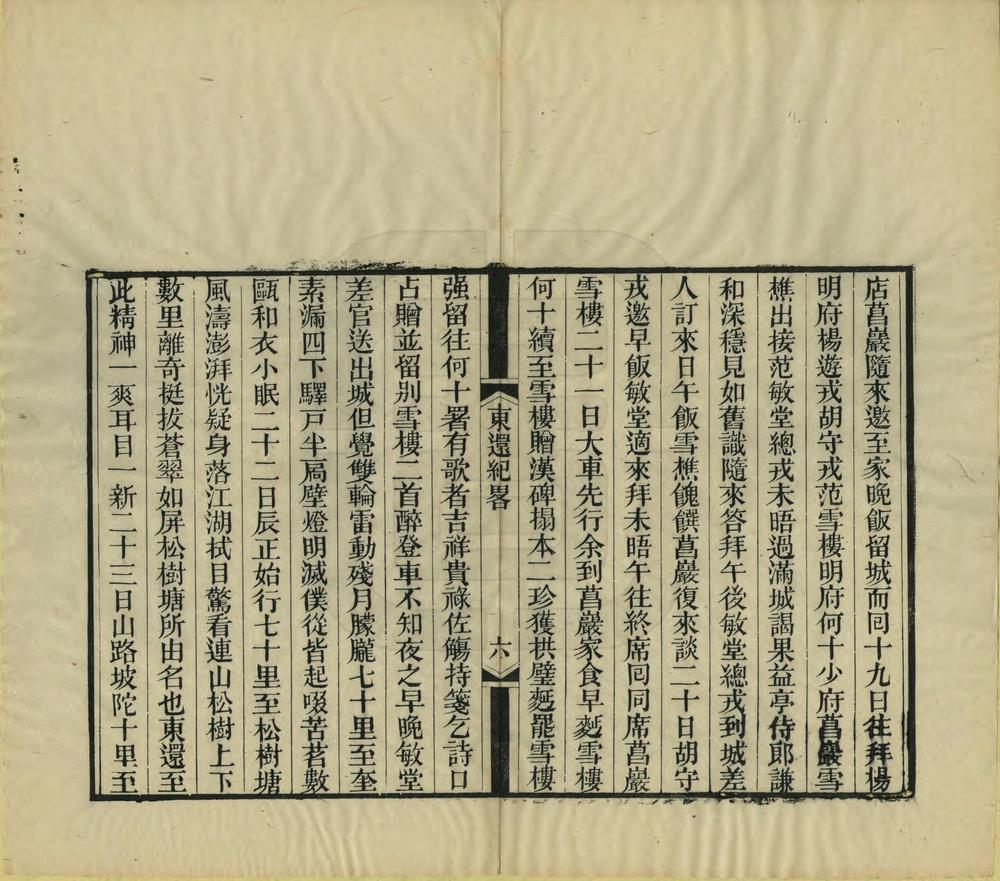 店菖巖隨來邀至家晚飯留城而囘十九日往拜楊
明府楊遊戎胡守戎范雪樓明府何十少府菖巖雪
樵出接范敏堂總戎未晤過滿城謁果益亭侍郎謙
和深穩見如舊識隨來答拜午後敏堂總戎到城差
人訂來日午飯雪樵餽饌菖巖復來談二十日胡守
戎邀早飯敏堂適來拜未晤午往終席囘同席菖巖
雪樓二十一日大車先行余到菖巖家食早麪雪樓
何十續至雪樓贈漢碑搨本二珍獲拱璧麪罷雪樓
強留往何十署有歌者吉祥貴祿佐觴持箋乞詩口
占贈並留別雪樓二首醉登車不知夜之早晚敏堂
差官送出城但覺雙輪雷動殘月朦朧七十里至奎
素漏四下驛戸半扃壁燈明滅僕從皆起啜苦茗數
甌和衣小眠二十二日辰正始行七十里至松樹塘
風濤澎湃恍疑身落江湖拭目驚看連山松樹上下
數里離奇挺拔蒼翠如屏松樹塘所由名也東還至
此精神一爽耳目一新二十三日山路坡陀十里至
東還紀畧
六